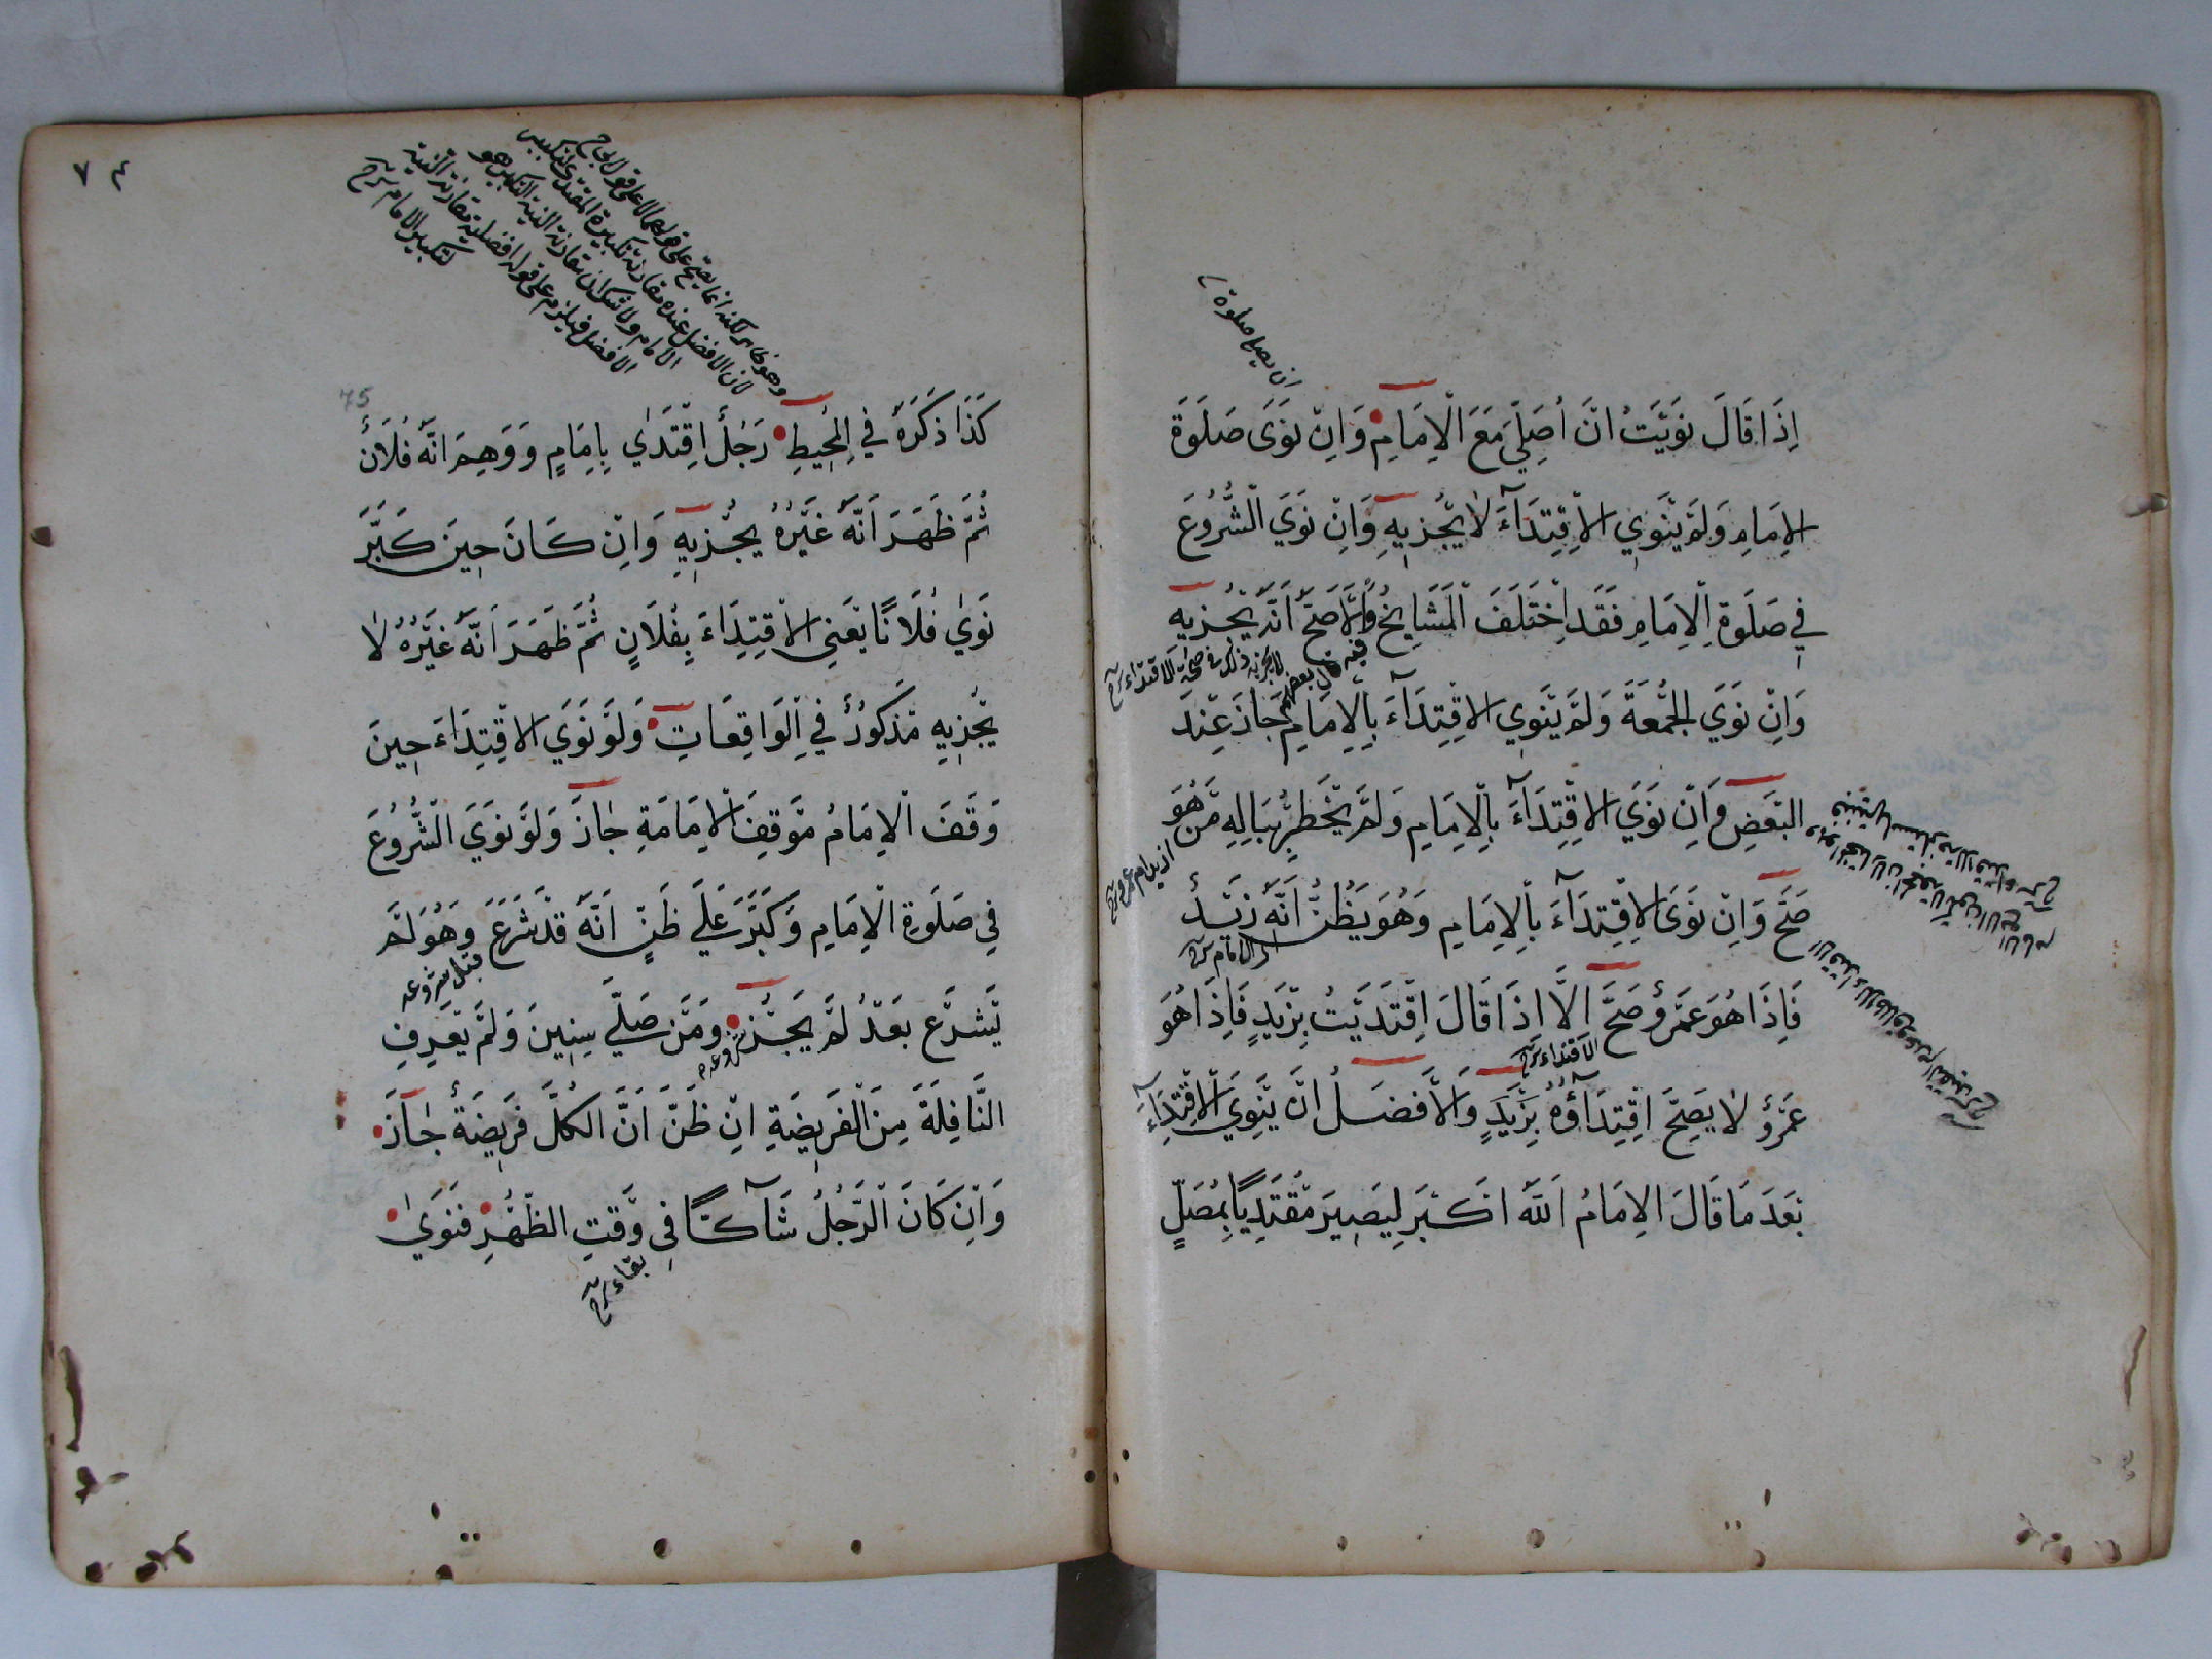 اِذَا قَالَ نَوَيْتُ اَنْ اُصَلِّيَ مَعَ الْاِمَامِ وَاِنْ نَوَى صَلَوةَ
الْاِمَامِ وَلَمْ يَنْوِي الْاِقْتِدَآءَ لَا يُجْزِيهِ وَاِنْ نَوَيَ الشُّرُوعَ
فِي صَلَوةِ الْاِمَامِ فَقَدِ اخْتَلَفَ الْمَشَايِخُ وَالْاَصَحُّ اَنَّهُ يُجْزِيهِ
وَاِنْ نَوَيَ الْجُمُعَةَ وَلَمْ يَنْوِي الْاِقْتِدَآءَ بِالْاِمَامِ جَازَ عِنْدَ
الْبَعْضِ وَاِنْ نَوَيَ الْاِقْتِدَآءَ بِالْاِمَامِ وَلَمْ يَخْطُرْ بِبَالِهِ مَنْ هُوَ
صَحَّ وَاِنْ نَوَى الْاِقْتِدَآءَ بِالْاِمَامِ وَهُوَ يَظُنُّ اَنَّهُ زَيْدٌ
فَاِذَا هُوَ عَمْرٌو صَحَّ اِلَّا اِذَا قَالَ اِقْتَدَيْتُ بِزَيْدٍ فَاِذَا هُوَ
عَمْرٌو لَا يَصِحُّ اِقْتِدَآؤُهُ بِزَيْدٍ وَالْاَفْضَلُ اَنْ يَنْوِيَ الْاِقْتِدَآءَ
بَعْدَ مَا قَالَ الْاِمَامُ اَللّٰهُ اَكْبَرُ لِيَصِيرَ مُقْتَدِيًا بِمُصَلٍّ
ان يصلي صلوة
الاقتداء
٧٤
75
وهو ظاهر لكنه انما يصح على قولهما لا على قول
لان الافضل عنده مقارنة تكبيرة المقتدى لتكبير
الامام ولا شك ان مقارنة النية التكبير هو
الافضل فيلزم على قوله افضلية مقارنة النية
لتكبير الامام شرح
كَذَا ذَكَرَهُ فِي الْمُحِيطِ رَجُلٌ اِقْتَدٰي بِاِمَامٍ وَوَهِمَ اَنَّهُ فُلَانٌ
ثُمَّ ظَهَرَ اَنَّهُ غَيْرُهُ يُجْزِيهِ وَاِنْ كَانَ حِينَ كَبَّرَ
نَوٰي فُلَانًا يَعْنِي الْاِقْتِدَاءَ بِفُلَانٍ ثُمَّ ظَهَرَ اَنَّهُ غَيْرُهُ لَا
يُجْزِيهِ مَذْكُورٌ فِي الْوَاقِعَاتِ وَلَوْ نَوَيَ الْاِقْتِدَاءَ حِينَ
وَقَفَ الْاِمَامُ مَوْقِفَ الْاِمَامَةِ جَازَ وَلَوْ نَوَيَ الشُّرُوعَ
فِي صَلَوةِ الْاِمَامِ وَكَبَّرَ عَلَي ظَنِّ اَنَّهُ قَدْ شَرَعَ وَهُوَ لَمْ
قبل شروعه
يَشْرَعْ بَعْدُ لَمْ يَجُزْ وَمَنْ صَلَّي سِنِينَ وَلَمْ يَعْرِفِ
النَّافِلَةَ مِنَ الْفَرِيضَةِ اِنْ ظَنَّ اَنَّ الْكُلَّ فَرِيضَةٌ جَازَ
وَاِنْ كَانَ الرَّجُلُ شَآكًّا فِي وَقْتِ الظُّهْرِ فَنَوٰي
بقاء شرح